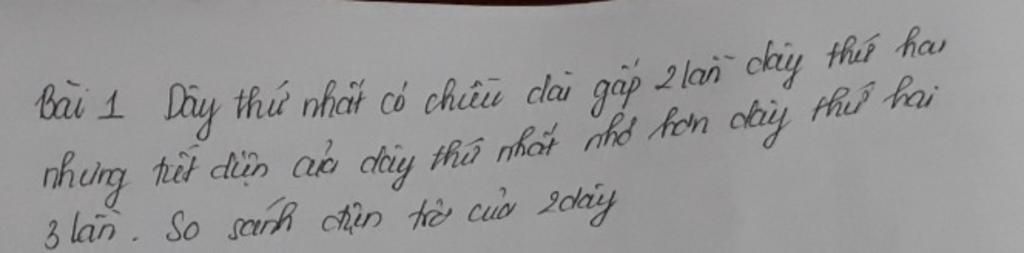 Bài 1 Dây thứ nhất có chiều dài gấp 2 lần dây thứ hai
nhưng tiết diện của dây thứ nhất nhỏ hơn dây thứ hai
3 lần. So sánh điện trở của 2 dây